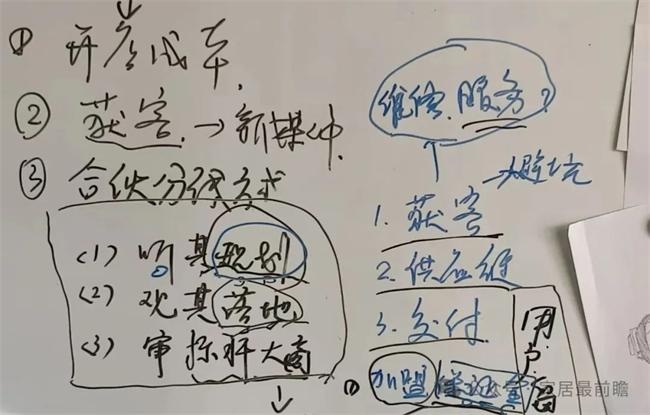 ① 开店成本
② 获客 → 新媒体
③ 合伙分钱方式
(1) 听其规划
(2) 观其落地
(3) 审标杆大商
维修服务?
1. 获客 → 避坑
2. 供应链
3. 交付
加盟
用户
公众号·家居最前瞻